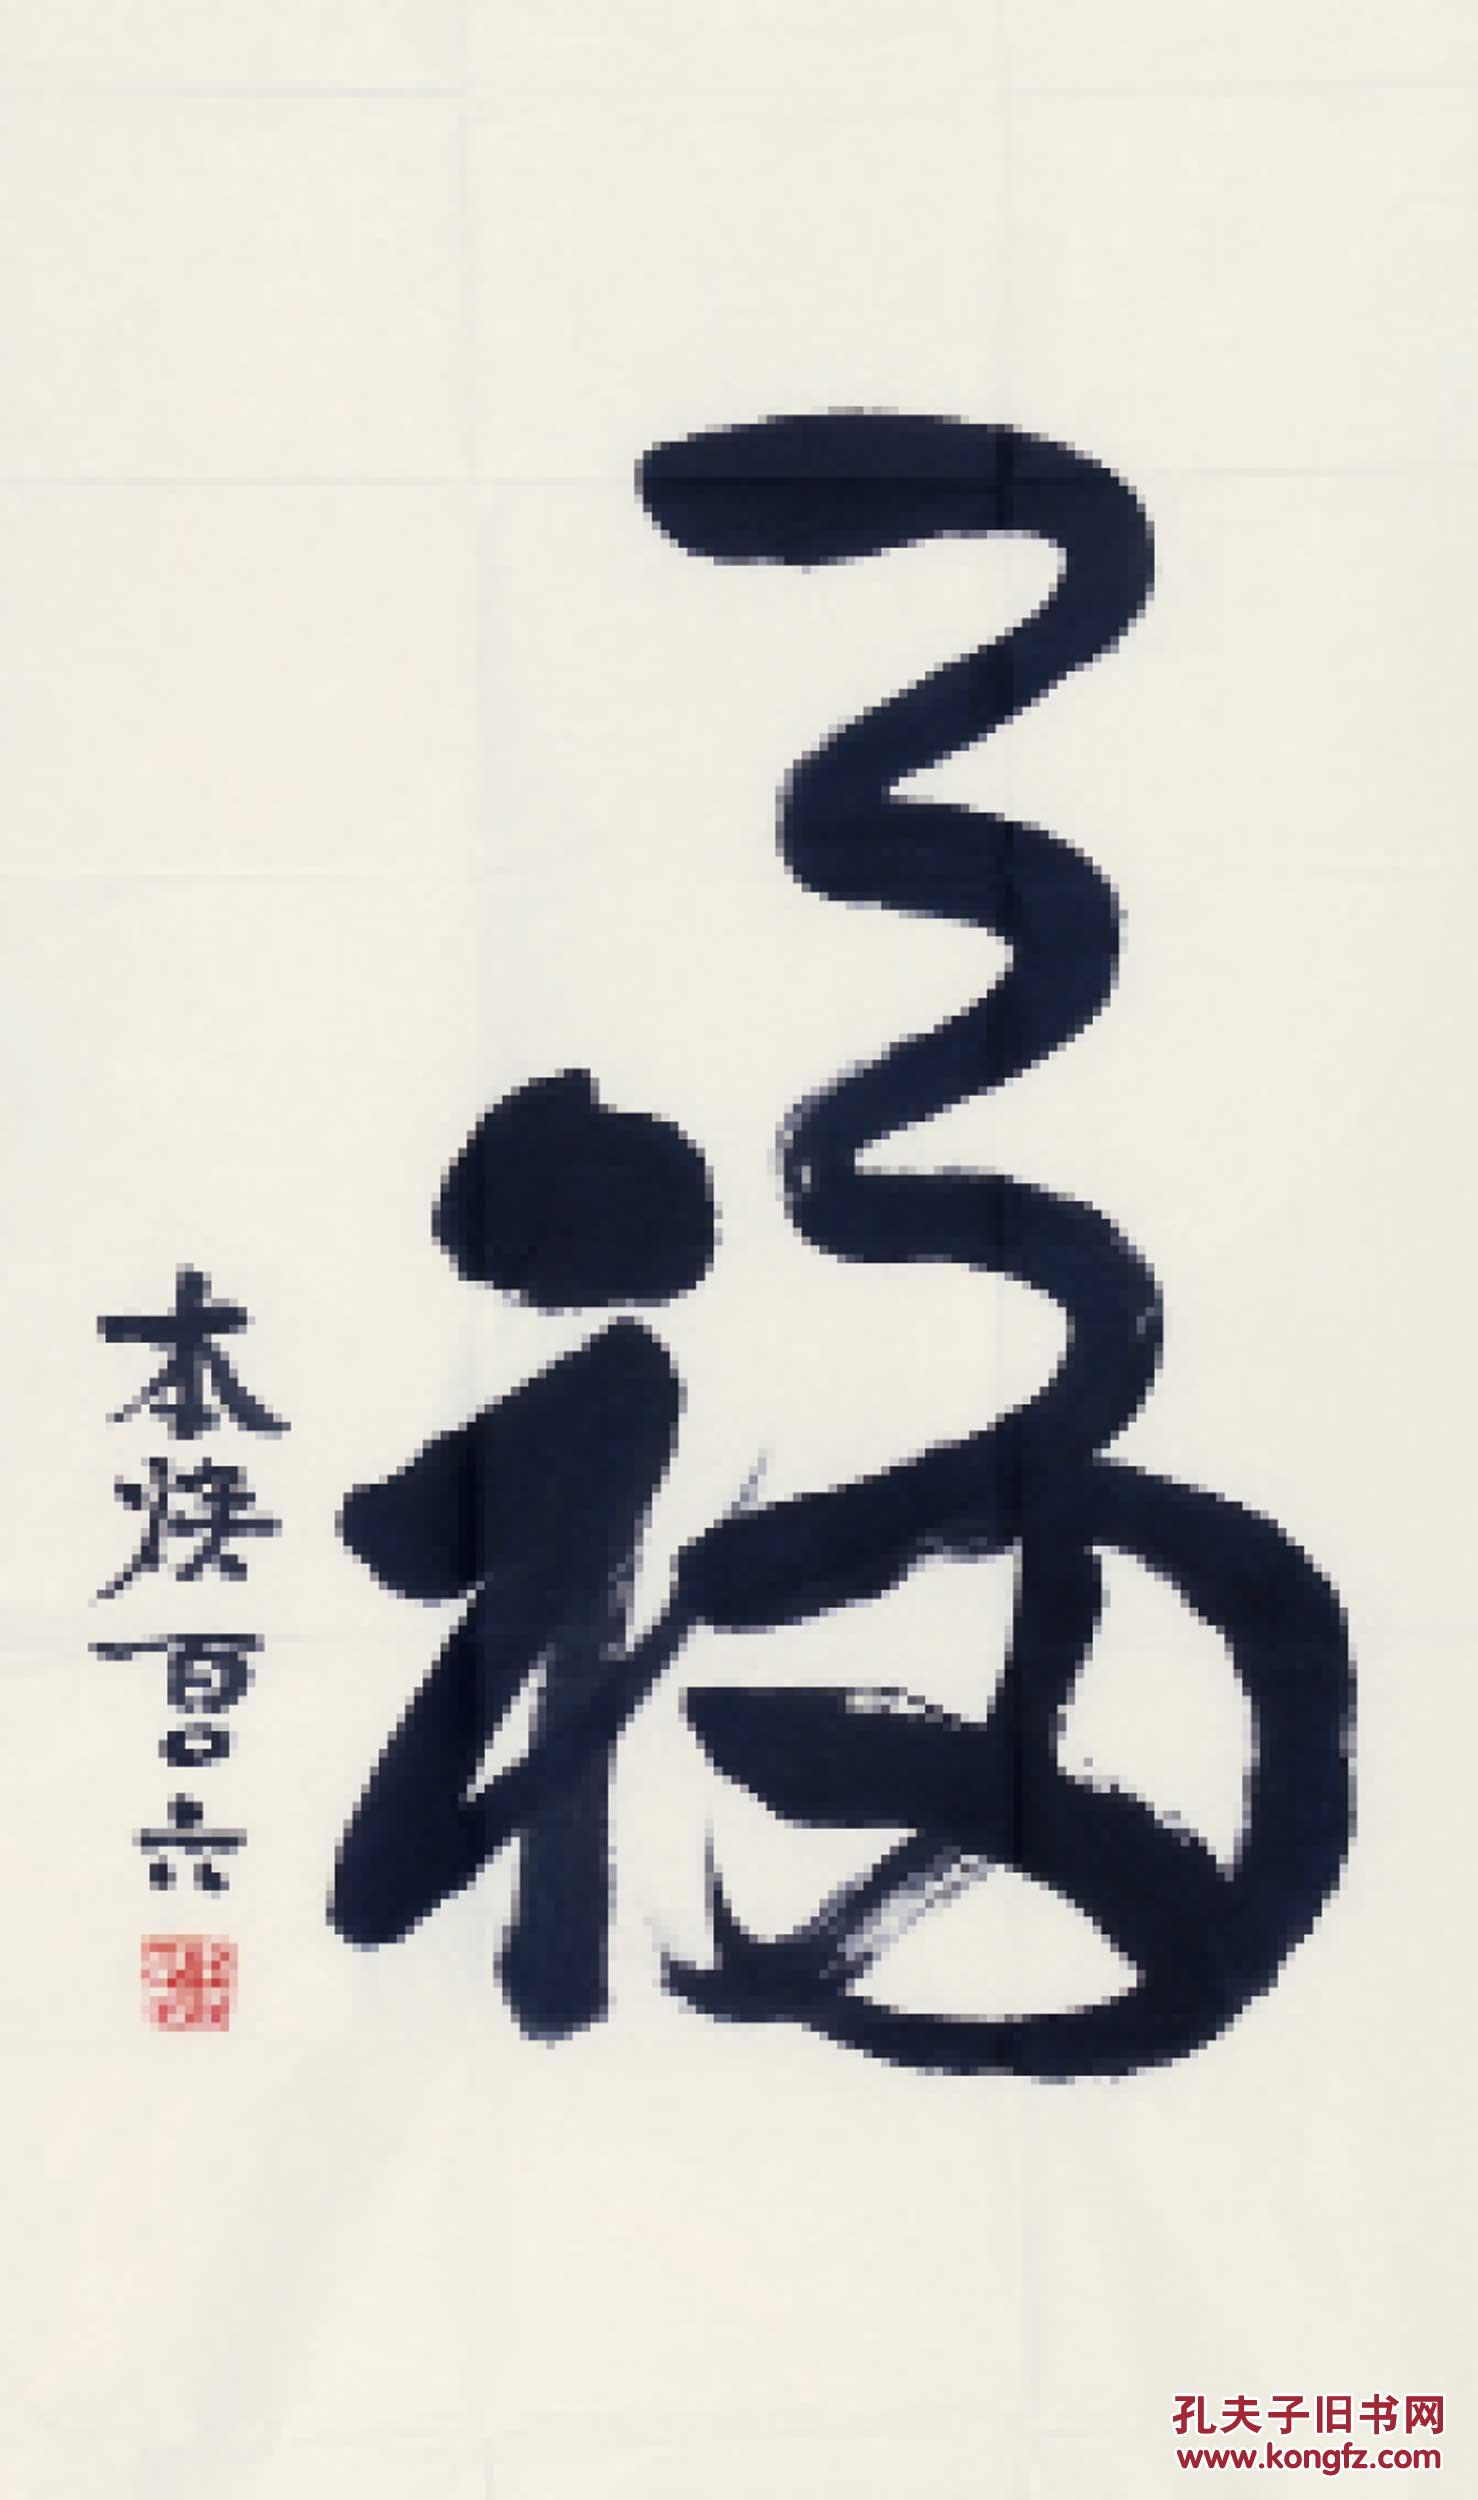 福
本焕 百〇六
孔夫子旧书网
www.kongfz.com